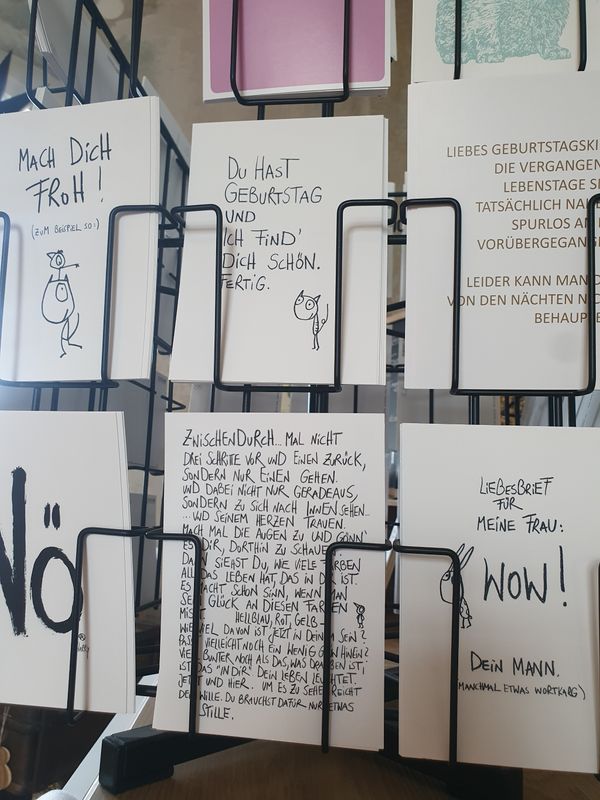 MACH DICH
FROH!
(ZUM BEISPIEL SO:)
DU HAST
GEBURTSTAG
UND
ICH FIND'
DICH SCHÖN.
FERTIG.
LIEBES GEBURTSTAGSKI
DIE VERGANGEN
LEBENSTAGE S
TATSÄCHLICH NA
SPURLOS AN
VORÜBERGEGANG
LEIDER KANN MAN D
VON DEN NÄCHTEN N
BEHAUP
NÖ
ZWISCHENDURCH... MAL NICHT
DREI SCHRITTE VOR UND EINEN ZURÜCK,
SONDERN NUR EINEN GEHEN.
UND DABEI NICHT NUR GERADEAUS,
SONDERN ZU SICH NACH INNEN SEHEN...
...UND SEINEM HERZEN TRAUEN.
MACH MAL DIE AUGEN ZU UND GÖNN'
ES DIR, DORTHIN ZU SCHAUEN.
DANN SIEHST DU, WE VIELE FARBEN
ALL DAS LEBEN HAT, DAS IN DIR IST.
ES MACHT SCHON SINN, WENN MAN
SEIN GLÜCK AN DIESEN FARBEN
HELLBLAU, ROT, GELB-
WIE VIEL DAVON IST JETZT IN DEINEM SEIN?
PASST VIELLEICHT NOCH EIN WENIG GRÜN HINEIN?
VIEL BUNTER NOCH ALS DAS, WAS DRAUßEN IST,
IST DAS "IN DIR" DEIN LEBEN LEUCHTET.
JETZT UND HIER. UM ES ZU SEHEN REICHT
DEIN WILLE. DU BRAUCHST DAFÜR NUR ETWAS
STILLE.
LIEBESBRIEF
FÜR
MEINE FRAU:
WOW!
DEIN MANN.
(MANCHMAL ETWAS WORTKARG)